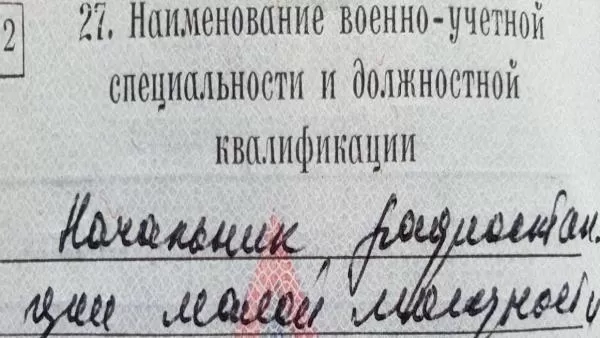 2
27. Наименование военно-учетной
специальности и должностной
квалификации
Начальник радиостан-
ции малой мощности